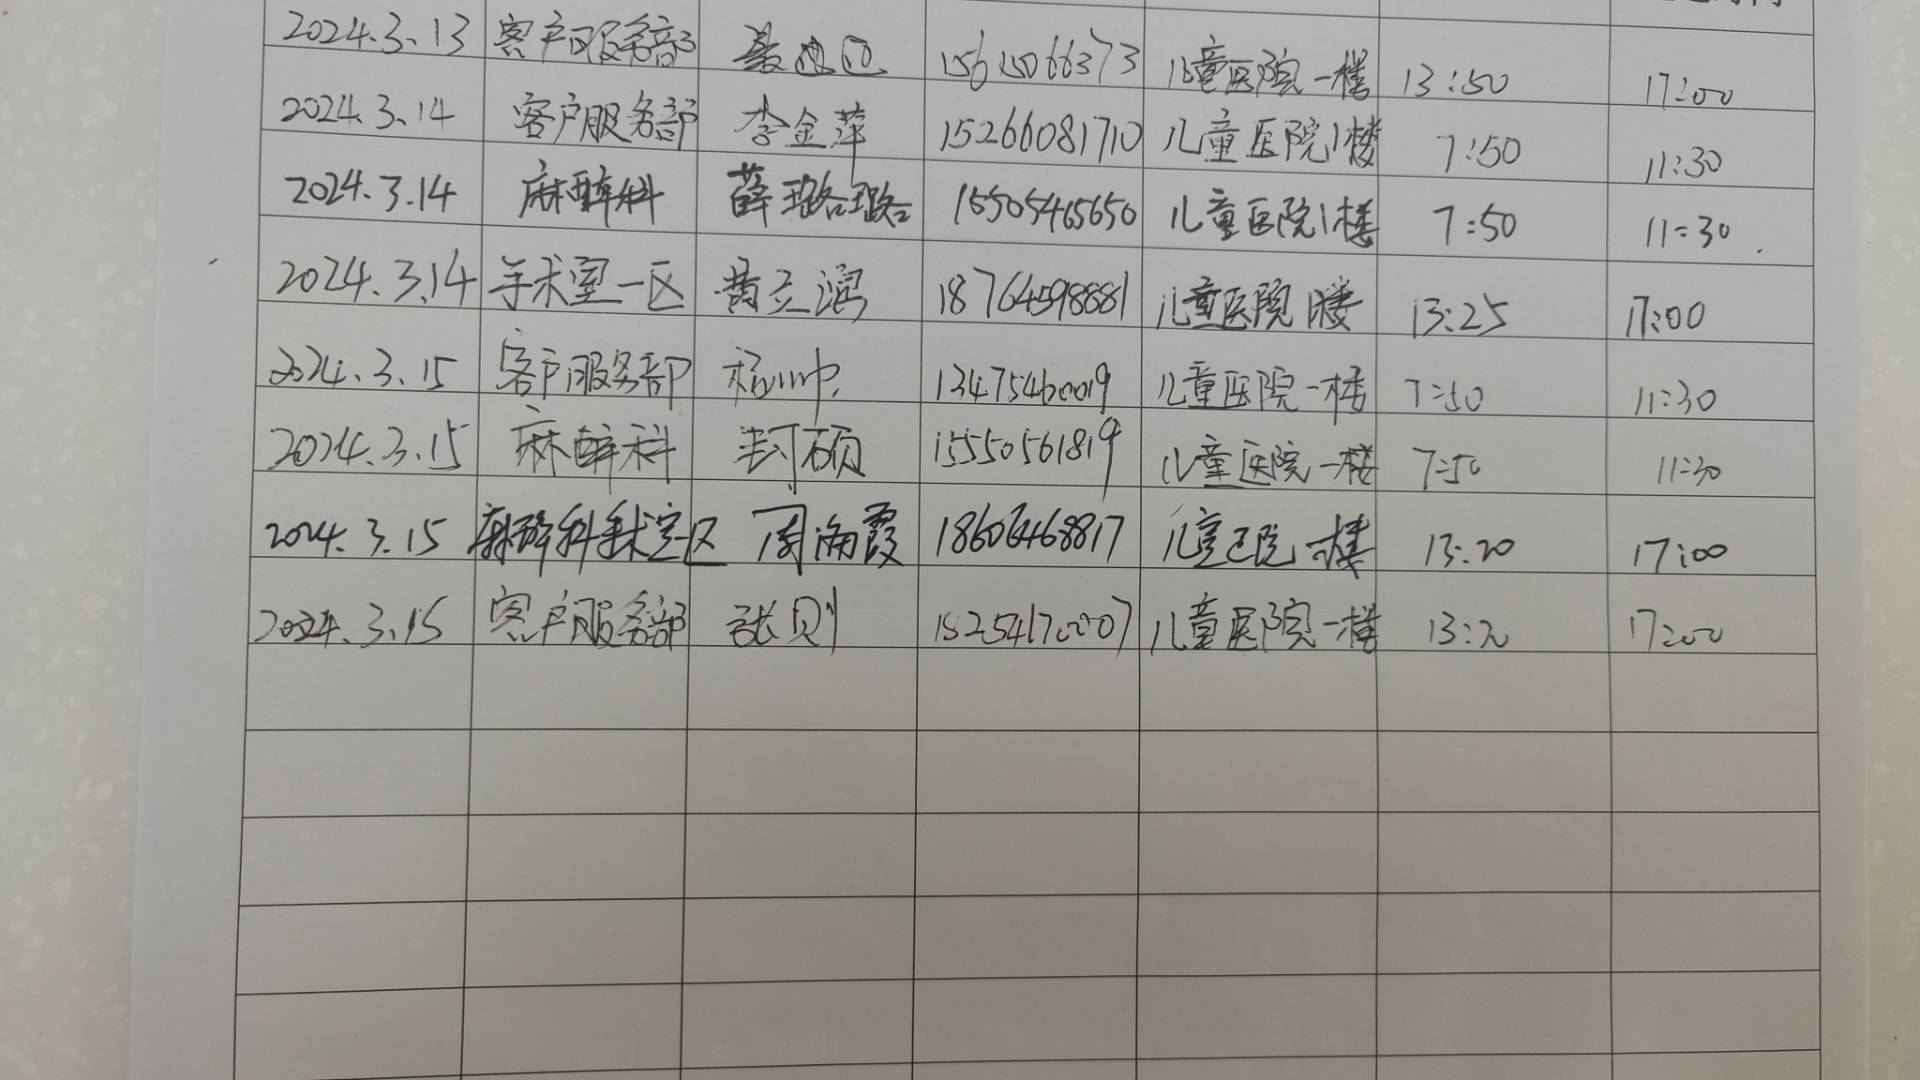 2024.3.13 客户服务部 15615066373 儿童医院一楼 13:50 17:00
2024.3.14 客户服务部 李金萍 15266081710 儿童医院1楼 7:50 11:30
2024.3.14 麻醉科 薛璐璐 15505465650 儿童医院1楼 7:50 11:30
2024.3.14 手术室一区 黄立润 18764598881 儿童医院1楼 13:25 17:00
2024.3.15 客户服务部 13475460019 儿童医院一楼 7:50 11:30
2024.3.15 麻醉科 封硕 15550561819 儿童医院一楼 7:50 11:30
2024.3.15 麻醉科手术室一区 周海霞 18606468817 儿童医院一楼 13:20 17:00
2024.3.15 客户服务部 张贝 18254170007 儿童医院一楼 13:20 17:00